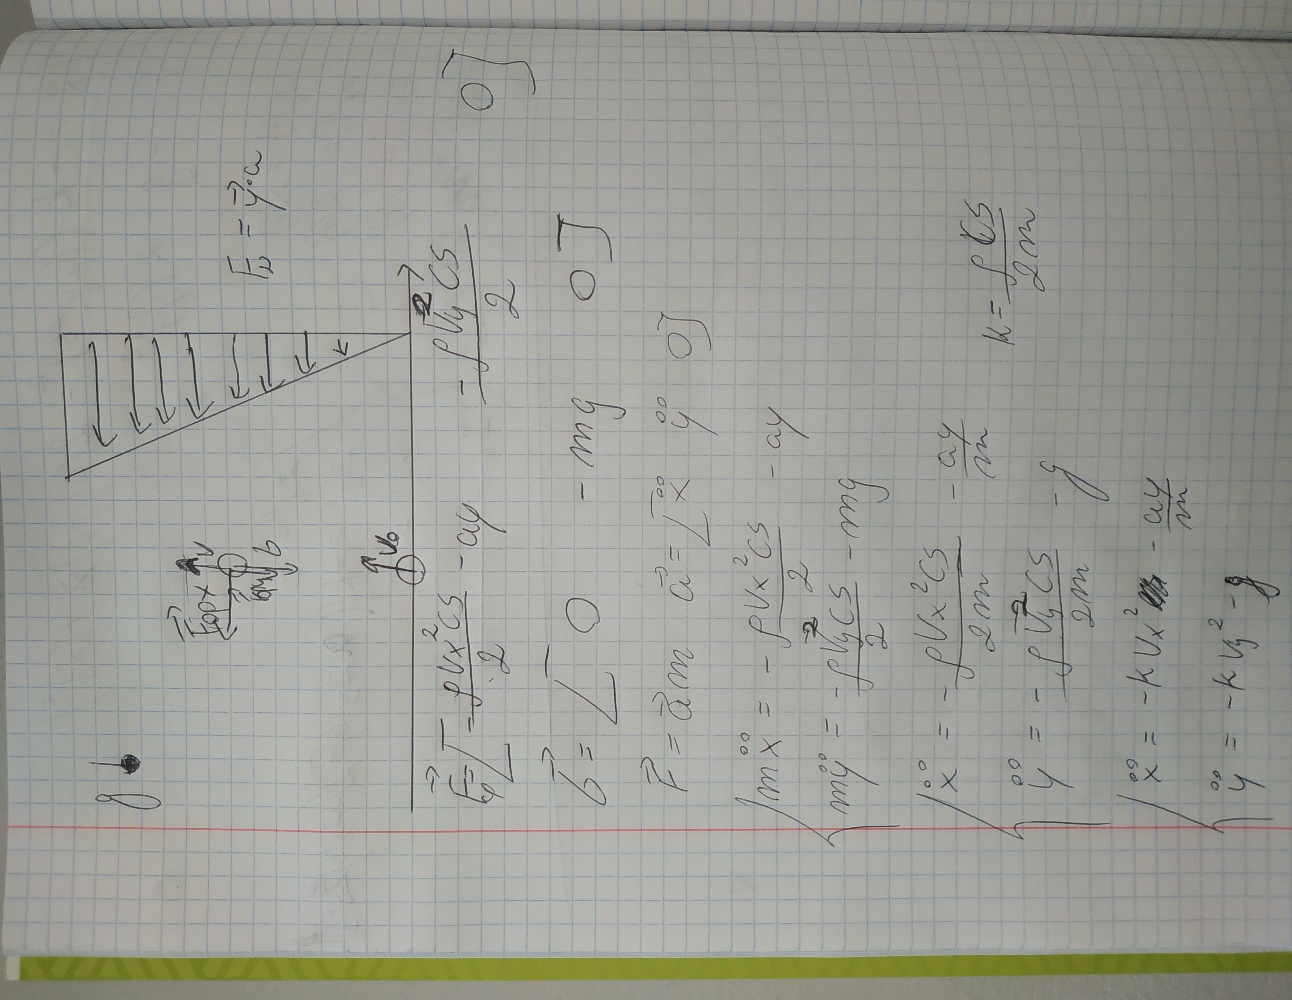 F⃗в = y⃗·a
F⃗сопрx v
b
v₀
F⃗ = [-ρVx²CS/2 - ay   -ρVy²CS/2   0]
G⃗ = [0   -mg   0]
F⃗ = a⃗m   a⃗ = [ẍ   ÿ   0]
mẍ = -ρVx²CS/2 - ay
mÿ = -ρVy²CS/2 - mg
ẍ = -ρVx²CS/2m - ay/m
ÿ = -ρVy²CS/2m - g
k = ρCS/2m
ẍ = -kVx² - ay/m
ÿ = -kVy² - g